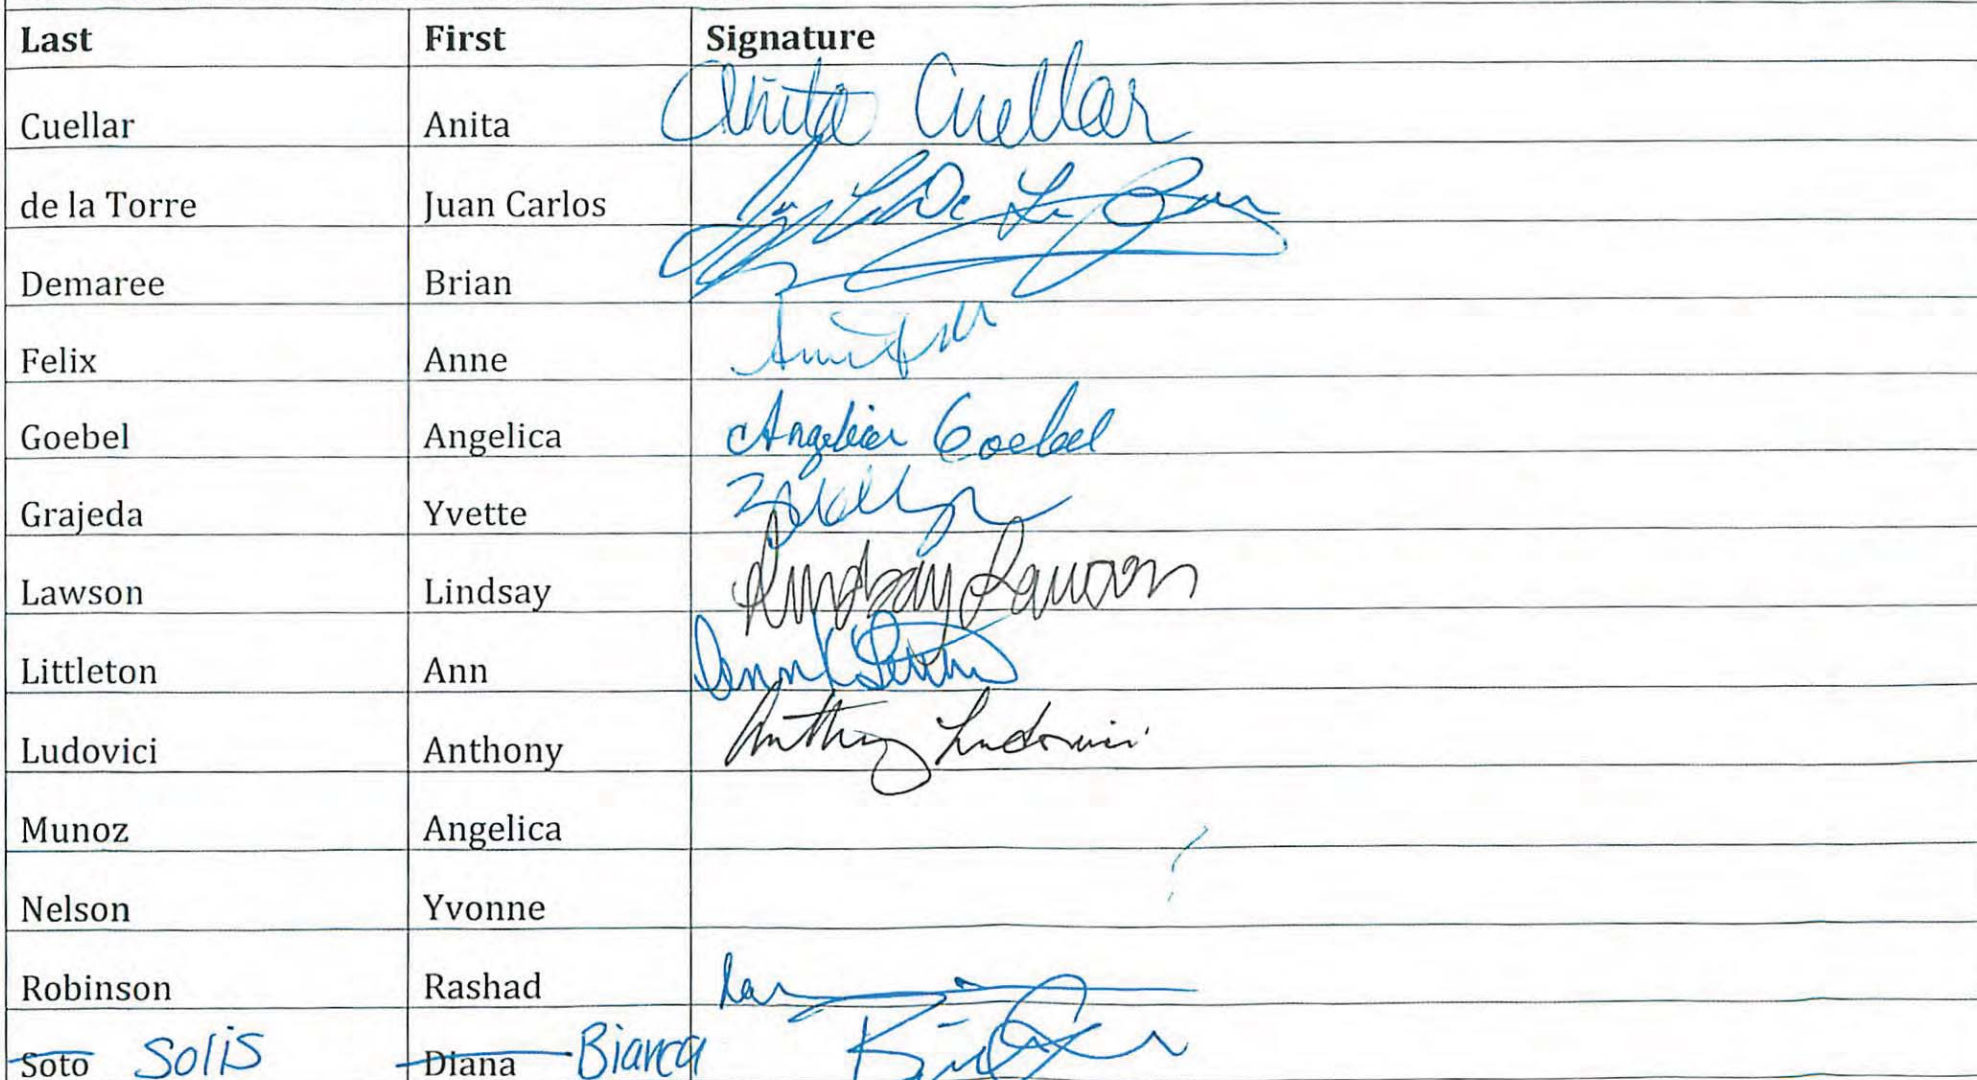 Last First Signature
Cuellar Anita Anita Cuellar
de la Torre Juan Carlos
Demaree Brian
Felix Anne
Goebel Angelica Angelica Goebel
Grajeda Yvette
Lawson Lindsay Lindsay Lawson
Littleton Ann
Ludovici Anthony Anthony Ludovici
Munoz Angelica
Nelson Yvonne
Robinson Rashad
Soto Solis Diana Bianca